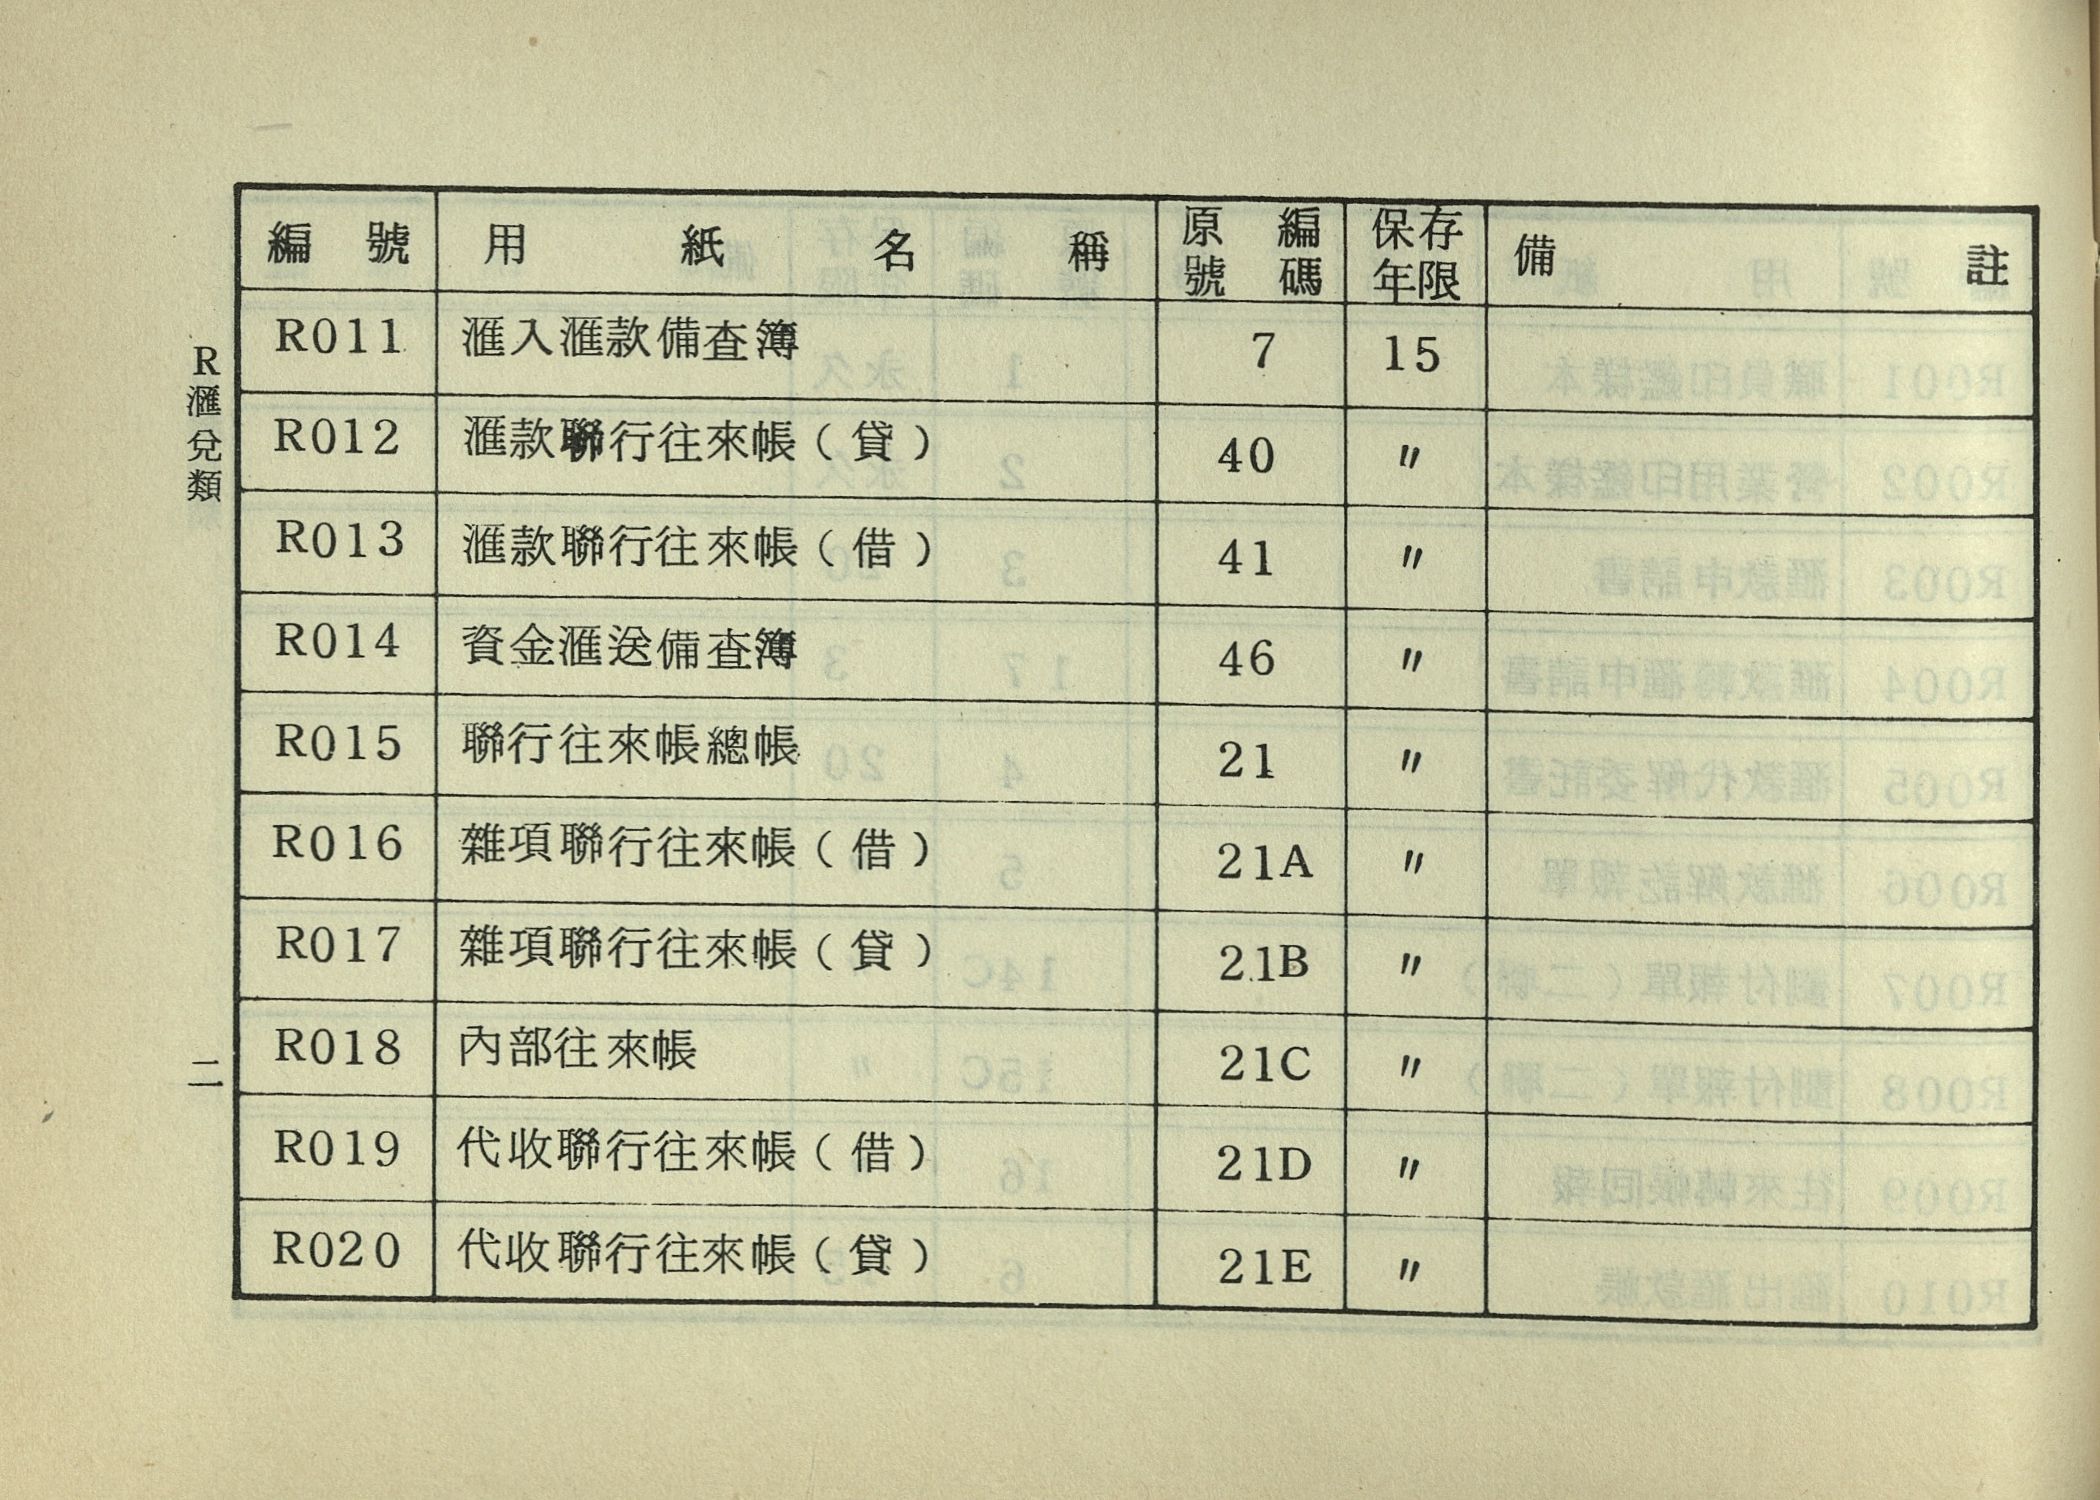 R滙兌類
二
編號 用紙名稱 原編號碼 保存年限 備註
R011 滙入滙款備查簿 7 15
R012 滙款聯行往來帳（貸） 40 〃
R013 滙款聯行往來帳（借） 41 〃
R014 資金滙送備查簿 46 〃
R015 聯行往來帳總帳 21 〃
R016 雜項聯行往來帳（借） 21A 〃
R017 雜項聯行往來帳（貸） 21B 〃
R018 內部往來帳 21C 〃
R019 代收聯行往來帳（借） 21D 〃
R020 代收聯行往來帳（貸） 21E 〃